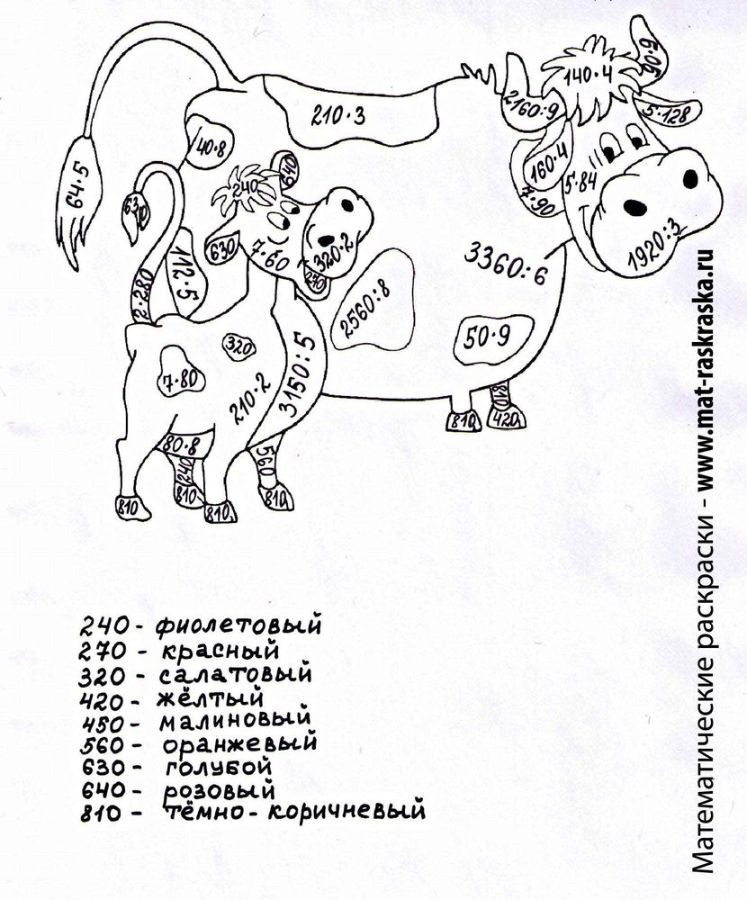 140·4
210·3
2160:9
5·128
40·8
160·4
640
64·5
240
5·84
7·90
630
630
7·60
320·2
1920:3
112·5
3360:6
2·280
2560:8
320
50·9
3150:5
7·80
210·2
810
810
420
80·8
560
240
810
810
810
810
240 - фиолетовый
270 - красный
320 - салатовый
420 - жёлтый
450 - малиновый
560 - оранжевый
630 - голубой
640 - розовый
810 - тёмно-коричневый
Математические раскраски - www.mat-raskraska.ru